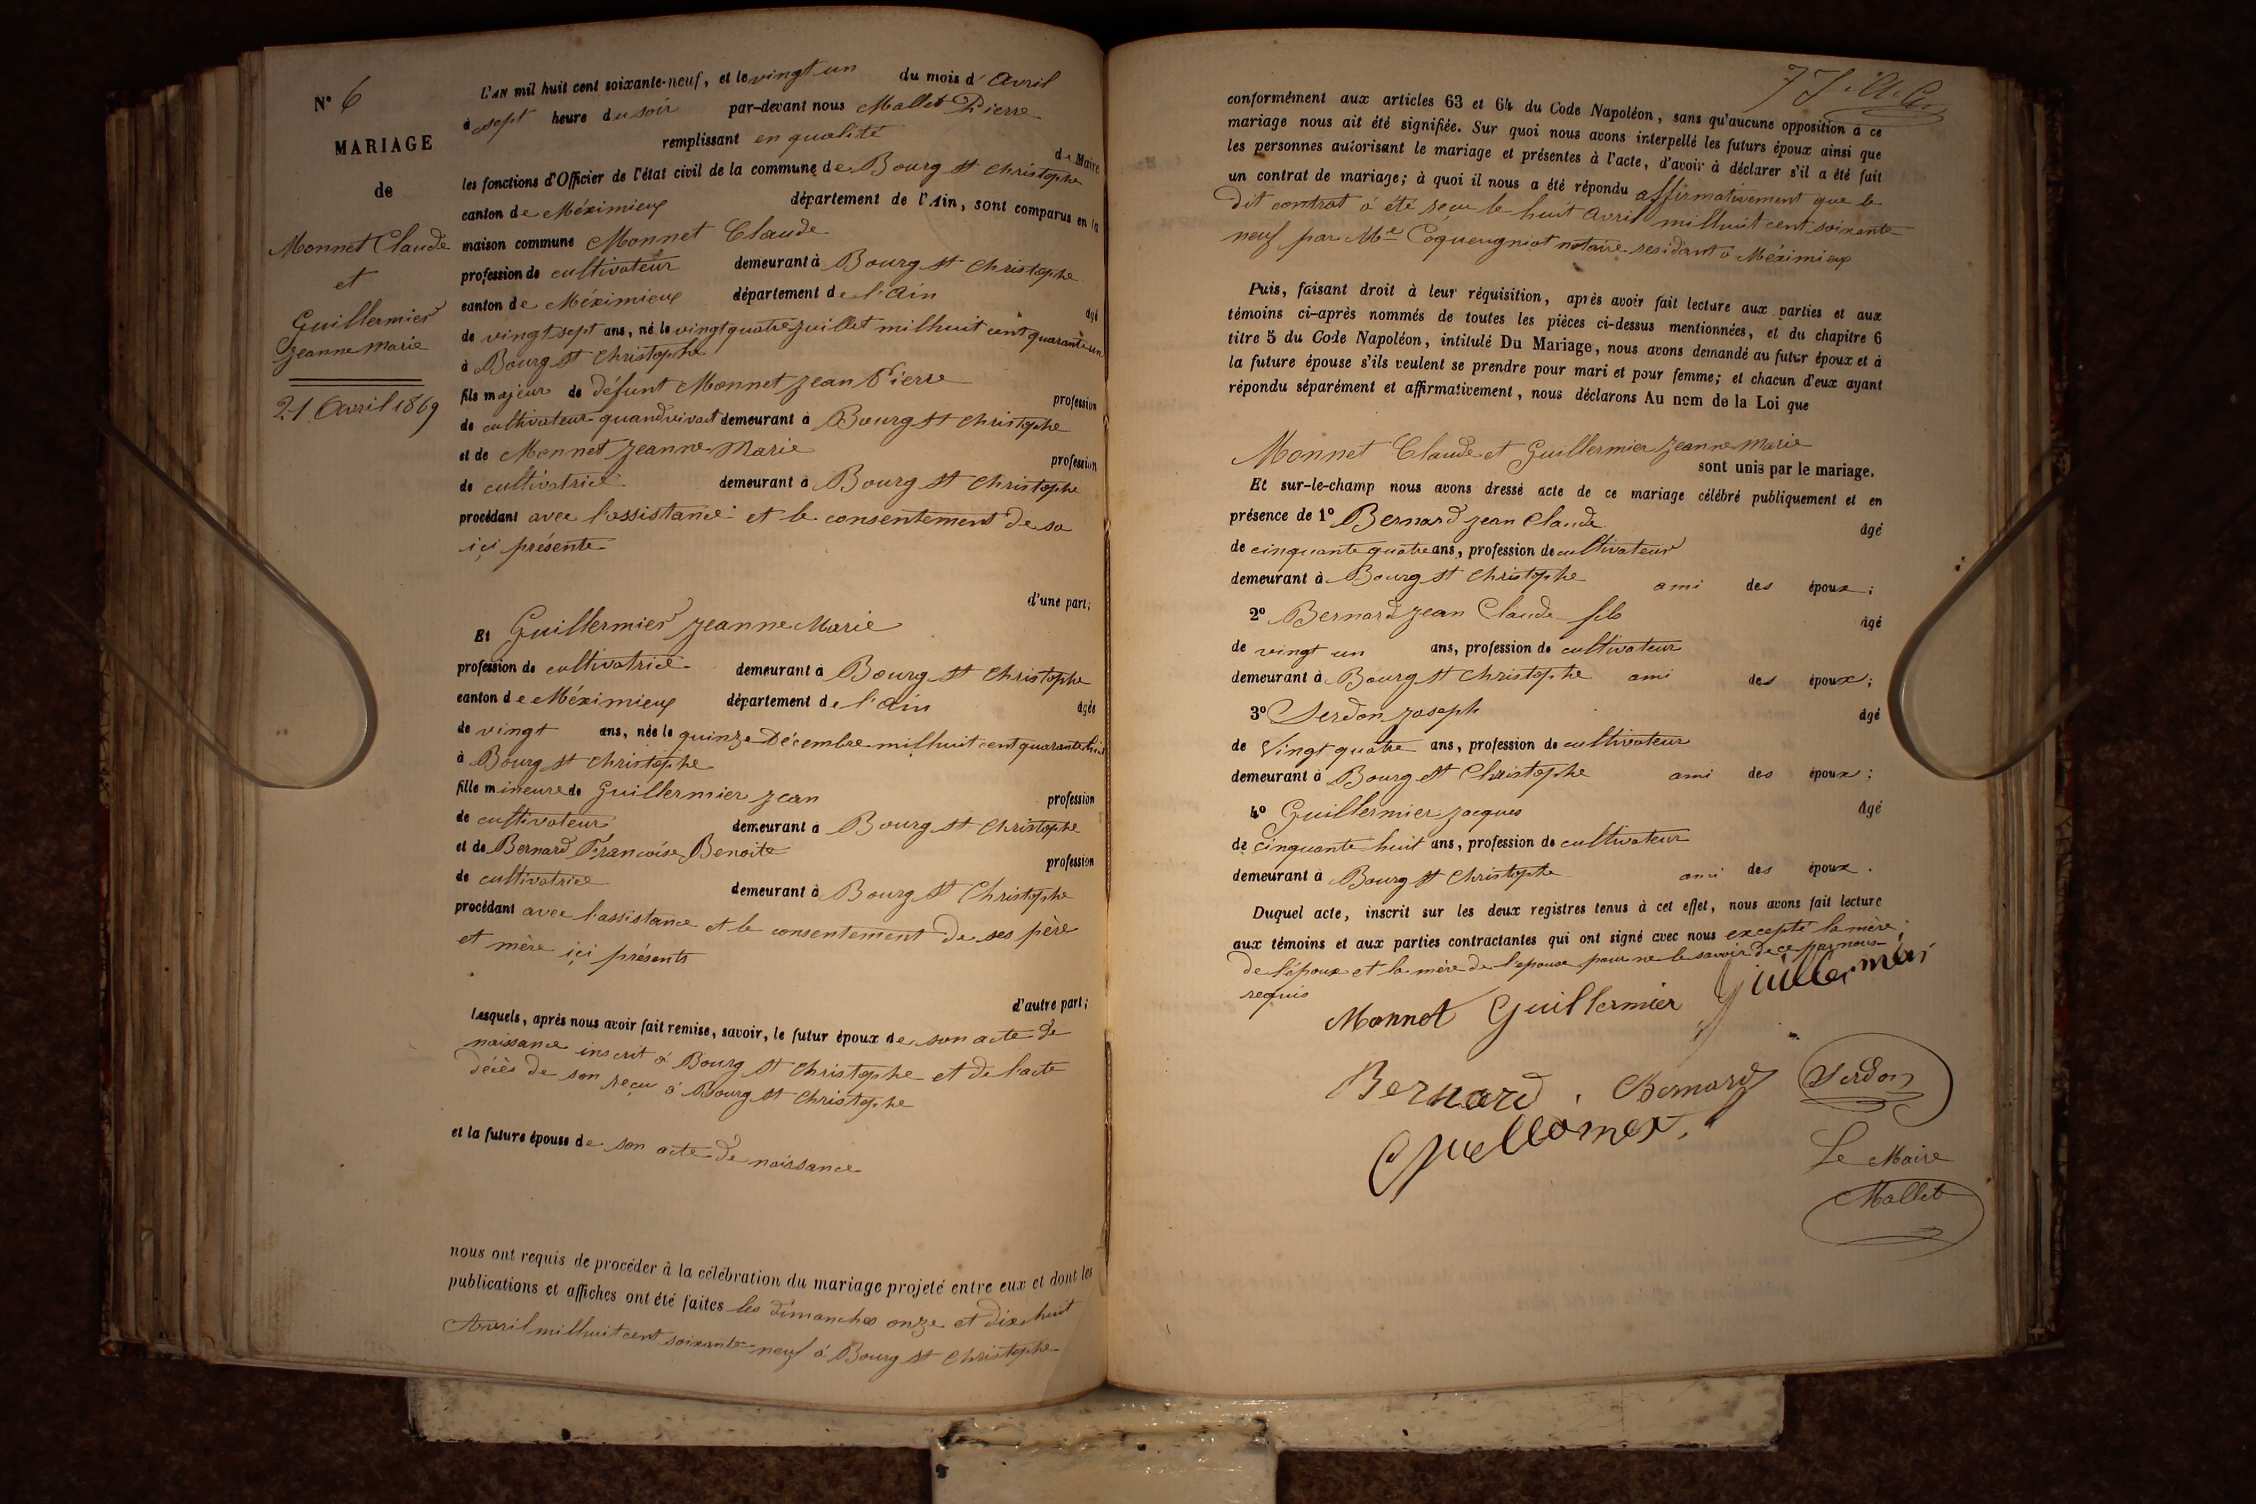 N° 6
MARIAGE
de
Monnet Claude
et
Guillermier
Jeanne Marie
21 Avril 1869
L'AN mil huit cent soixante-neuf, et le vingt un du mois d'Avril
à sept heure du soir par-devant nous Mallet Pierre
remplissant en qualité de Maire
les fonctions d'Officier de l'état civil de la commune de Bourg St Christophe
canton de Méximieux département de l'Ain, sont comparus en la
maison commune Monnet Claude
profession de cultivateur demeurant à Bourg St Christophe
canton de Méximieux département de l'Ain âgé
de vingt sept ans, né le vingt quatre Juillet mil huit cent quarante un
à Bourg St Christophe
fils majeur de défunt Monnet Jean Pierre profession
de cultivateur quand vivait demeurant à Bourg St Christophe
et de Monnet Jeanne Marie profession
de cultivatrice demeurant à Bourg St Christophe
procédant avec l'assistance et le consentement de sa
içi présente
d'une part;
Et Guillermier Jeanne Marie
profession de cultivatrice demeurant à Bourg St Christophe
canton de Méximieux département de l'Ain âgée
de vingt ans, née le quinze Décembre mil huit cent quarante huit
à Bourg St Christophe
fille mineure de Guillermier Jean profession
de cultivateur demeurant à Bourg St Christophe
et de Bernard Françoise Benoite profession
de cultivatrice demeurant à Bourg St Christophe
procédant avec l'assistance et le consentement de ses père
et mère içi présents
d'autre part;
Lesquels, après nous avoir fait remise, savoir, le futur époux de son acte de
naissance inscrit à Bourg St Christophe et de l'acte
décès de son reçu à Bourg St Christophe
et la future épouse de son acte de naissance
nous ont requis de procéder à la célébration du mariage projeté entre eux et dont les
publications et affiches ont été faites les dimanches onze et dix huit
Avril mil huit cent soixante neuf à Bourg St Christophe
conformément aux articles 63 et 64 du Code Napoléon, sans qu'aucune opposition à ce
mariage nous ait été signifiée. Sur quoi nous avons interpellé les futurs époux ainsi que
les personnes autorisant le mariage et présentes à l'acte, d'avoir à déclarer s'il a été fait
un contrat de mariage; à quoi il nous a été répondu affirmativement que le
dit contrat a été reçu le huit Avril mil huit cent soixante
neuf par Me Coqueugniot notaire residant à Méximieux
Puis, faisant droit à leur réquisition, après avoir fait lecture aux parties et aux
témoins ci-après nommés de toutes les pièces ci-dessus mentionnées, et du chapitre 6
titre 5 du Code Napoléon, intitulé Du Mariage, nous avons demandé au futur époux et à
la future épouse s'ils veulent se prendre pour mari et pour femme; et chacun d'eux ayant
répondu séparément et affirmativement, nous déclarons Au nom de la Loi que
Monnet Claude et Guillermier Jeanne Marie
sont unis par le mariage.
Et sur-le-champ nous avons dressé acte de ce mariage célébré publiquement et en
présence de 1° Bernard Jean Claude âgé
de cinquante quatre ans, profession de cultivateur
demeurant à Bourg St Christophe ami des époux;
2° Bernard Jean Claude fils âgé
de vingt un ans, profession de cultivateur
demeurant à Bourg St Christophe ami des époux;
3° Serdon Joseph âgé
de Vingt quatre ans, profession de cultivateur
demeurant à Bourg St Christophe ami des époux;
4° Guillermier Jacques âgé
de cinquante huit ans, profession de cultivateur
demeurant à Bourg St Christophe ami des époux.
Duquel acte, inscrit sur les deux registres tenus à cet effet, nous avons fait lecture
aux témoins et aux parties contractantes qui ont signé avec nous excepté la mère
de l'époux et la mère de l'epouse pour ne le savoir de ce par nous
requis
Monnet Guillermier Guillermier
Bernard Bernard Serdon
Le Maire
Mallet